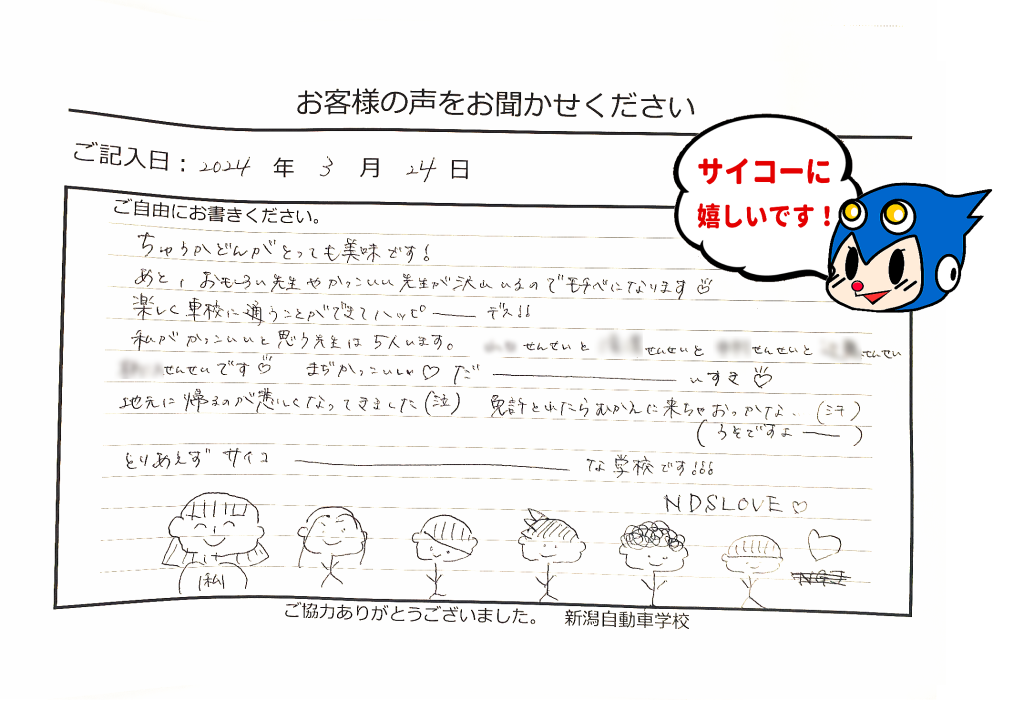 お客様の声をお聞かせください
ご記入日：2024 年 3 月 24 日
サイコーに
嬉しいです！
ご自由にお書きください。
ちゅうかどんがとっても美味です！
あと、おもしろい先生やかっこいい先生が沢山いるのでモチベになります♡
楽しく車校に通うことができてハッピーデス!!
私がかっこいいと思う先生は5人います。 せんせいと せんせいと せんせいと せんせい
せんせいです♡ まぢかっこいい♡ だ――いすき♡
地元に帰るのが悲しくなってきました(泣) 免許とれたらむかえに来ちゃおっかな、(汗)
(うそですよ――)
とりあえずサイコ――な学校です!!!
NDSLOVE♡
(私)
ご協力ありがとうございました。 新潟自動車学校